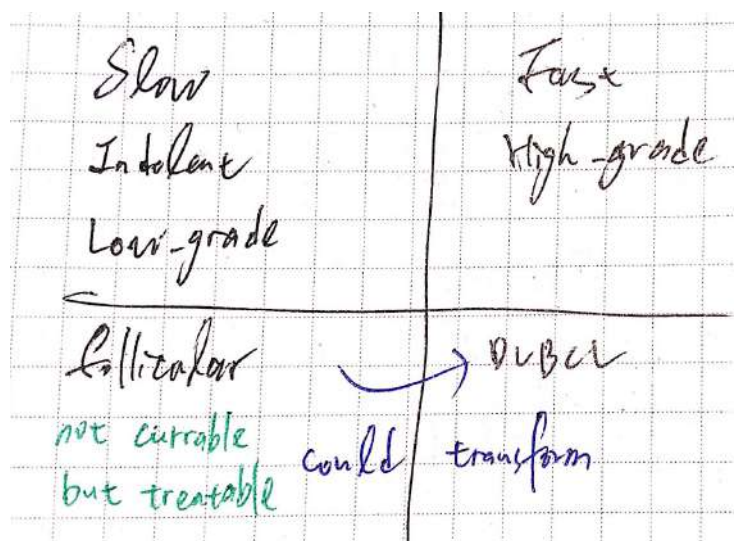 Slow
Indolent
Low-grade
Fast
High-grade
follicular
DLBCL
not currable
but treatable
could transform